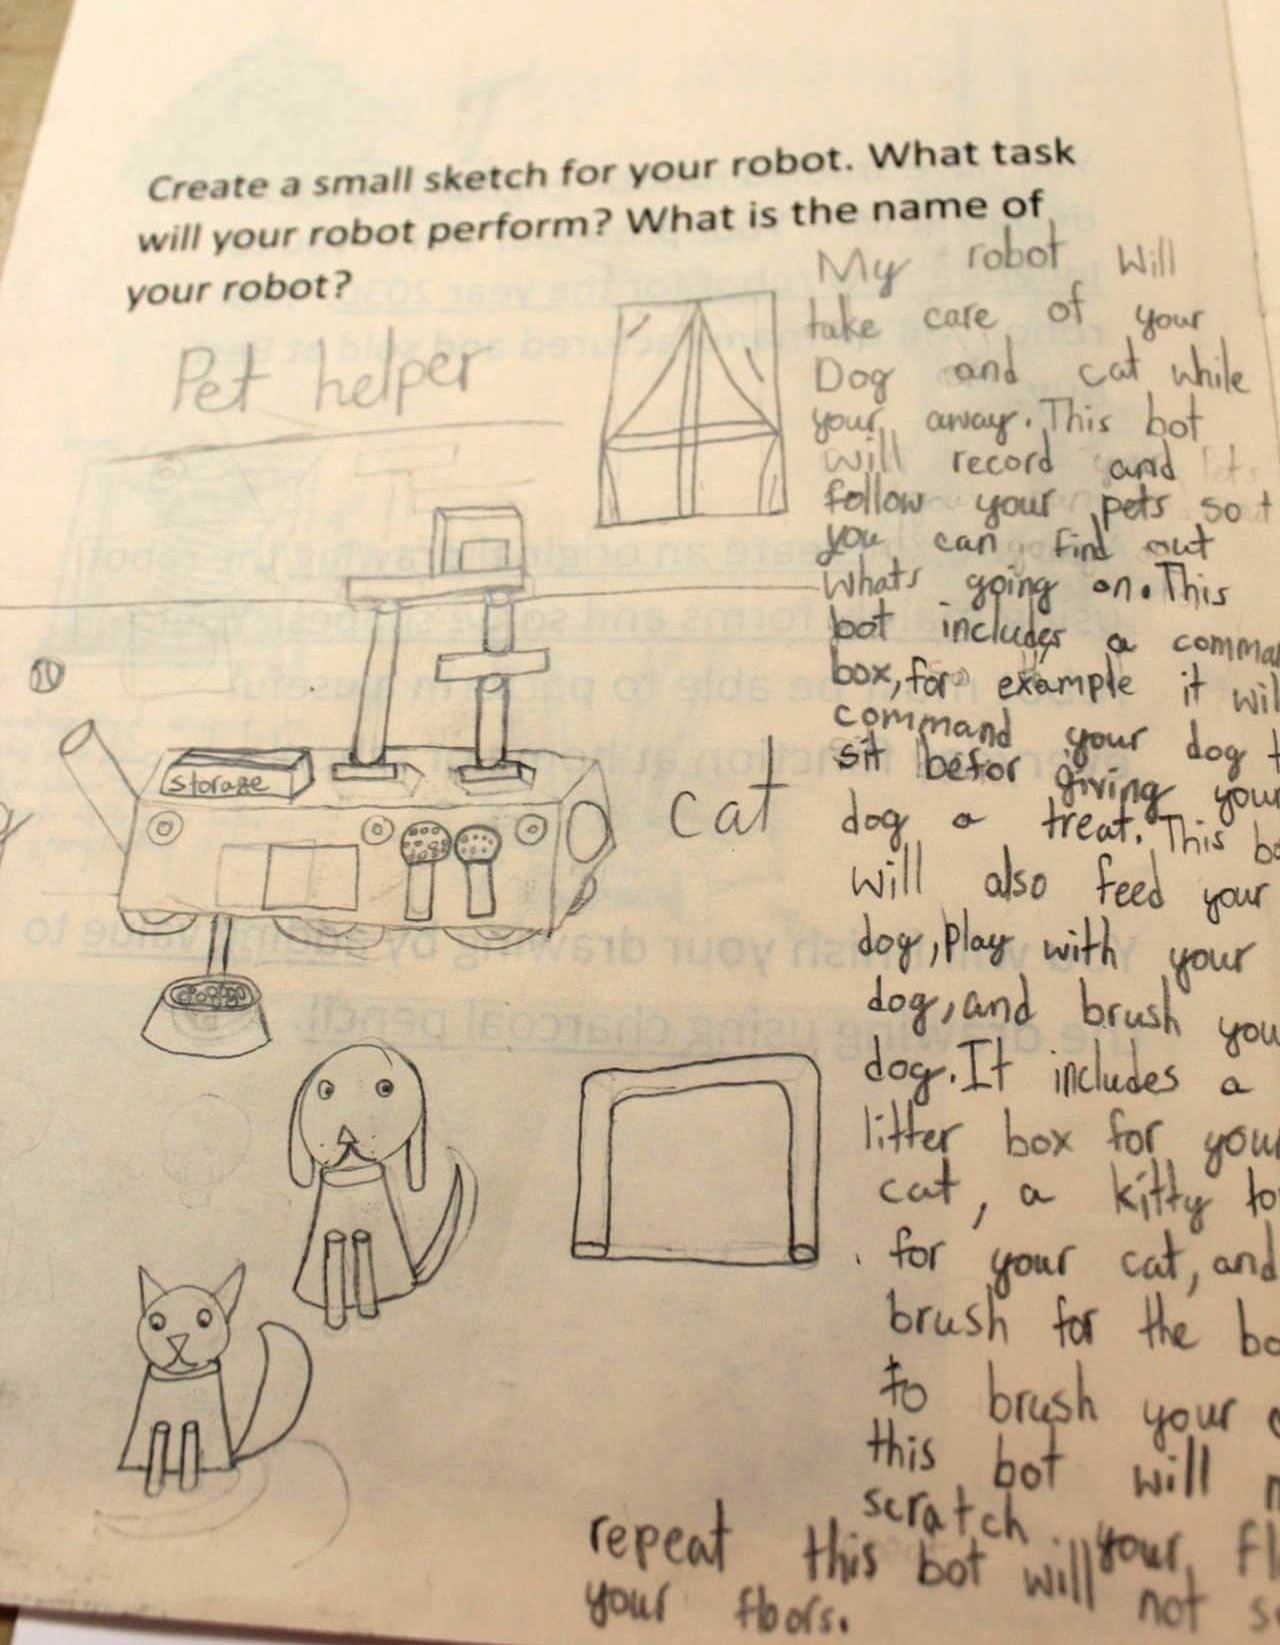 Create a small sketch for your robot. What task
will your robot perform? What is the name of
your robot?
Pet helper
storage
cat
My robot will
take care of your
Dog and cat while
your away. This bot
will record and
follow your pets so
you can find out
whats going on. This
bot includes a
box, for example it
command your dog
sit befor giving
dog a treat. This
will also feed your
dog, play with your
dog, and brush
dog. It includes a
litter box for
cat, a kitty
for your cat, and
brush for the
to brush your
this bot will
scratch your
repeat this bot will not
your floors.